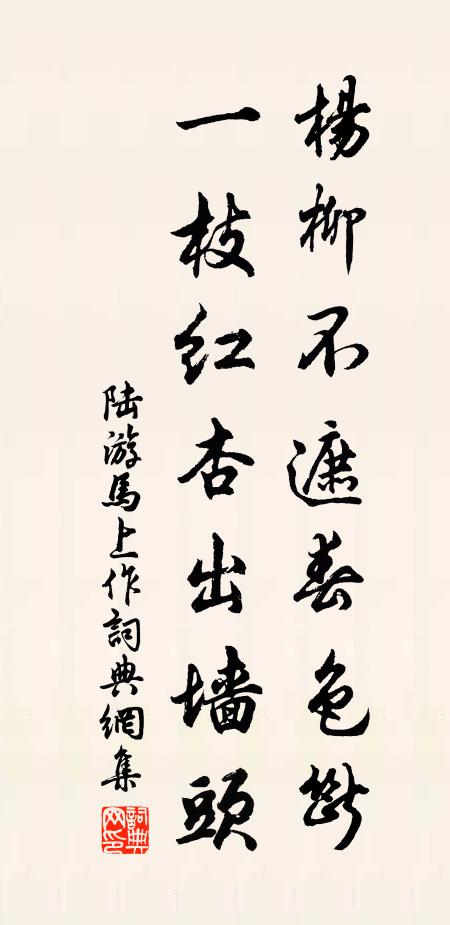 楊柳不遮春色斷
一枝红杏出墙頭
陆游馬上作詞典網集
詞典
网印